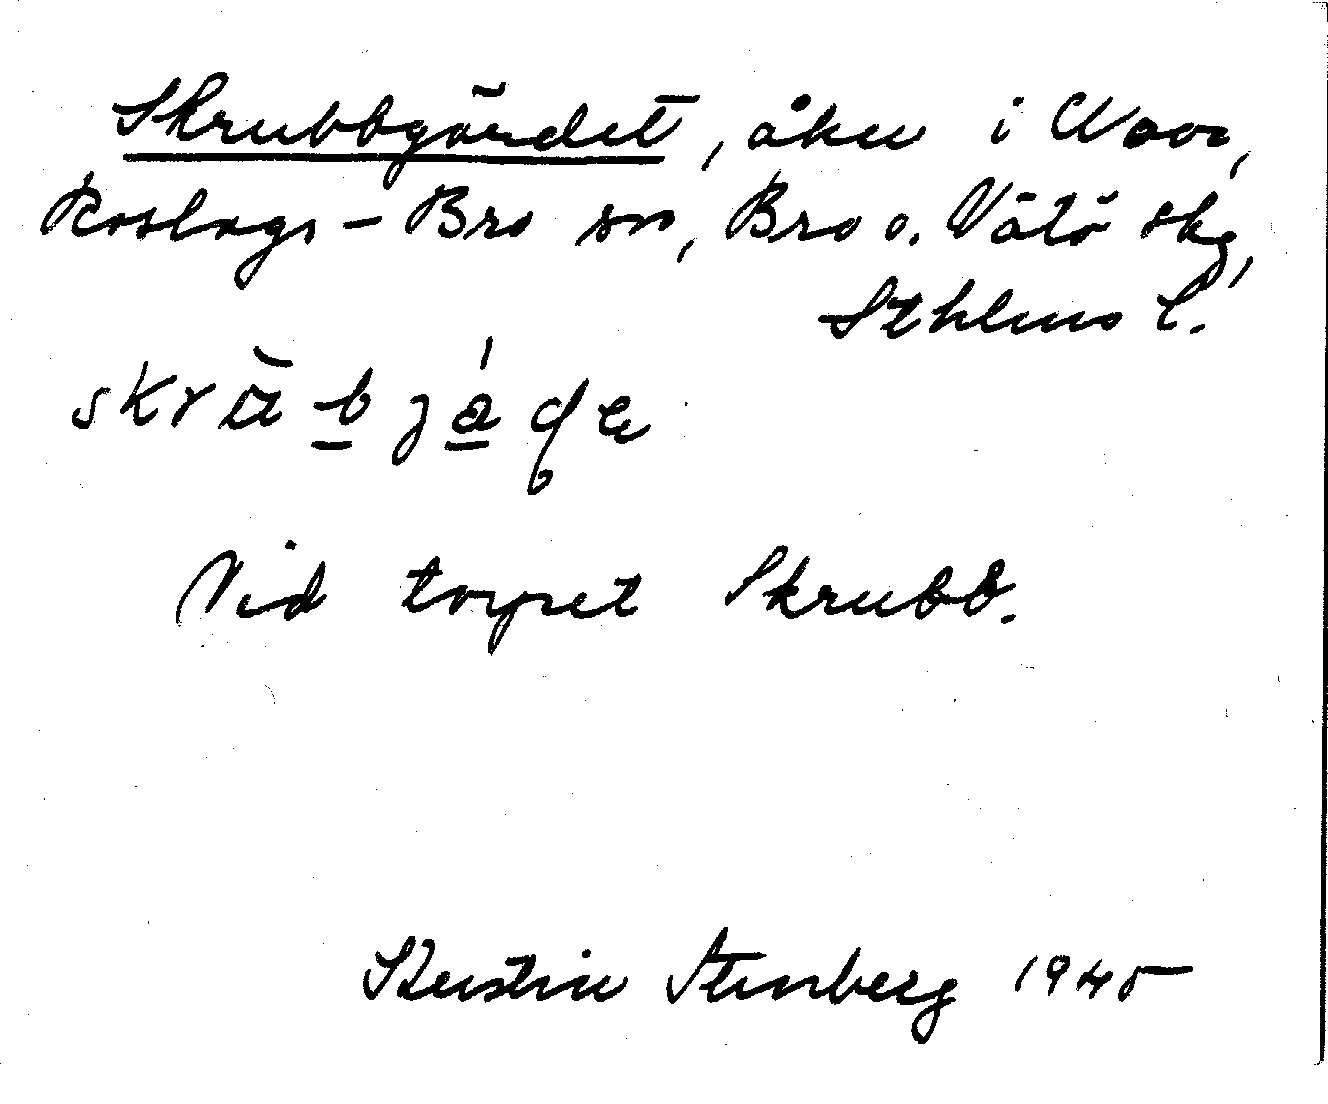 Skrubbgärdet, åker i Nor,
Roslags-Bro sn, Bro o. Vätö skg,
Sthlms l.
Vid torpet Skrubb.
Kerstin Stenberg 1945